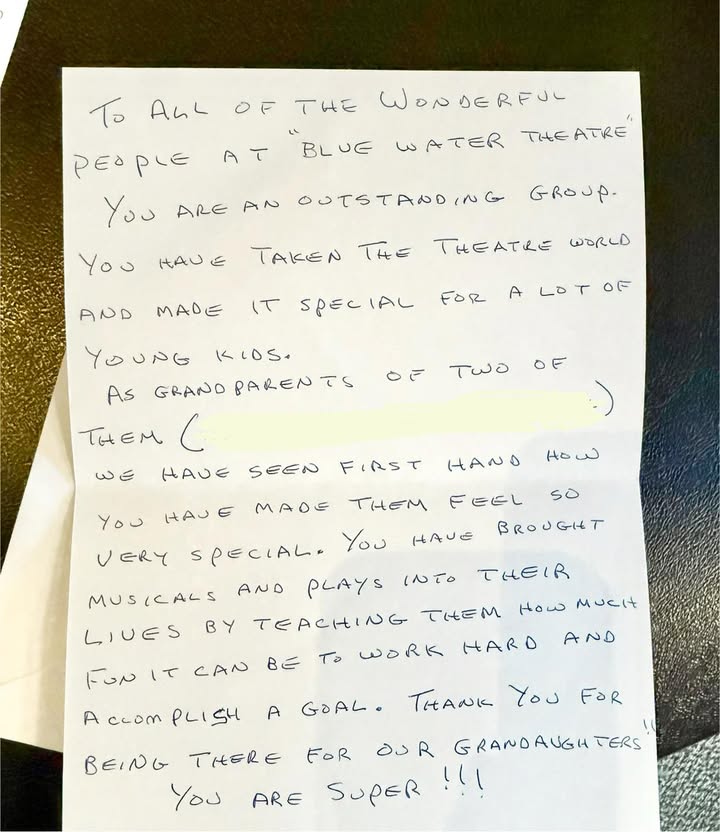 TO ALL OF THE WONDERFUL
PEOPLE AT "BLUE WATER THEATRE"
YOU ARE AN OUTSTANDING GROUP.
YOU HAVE TAKEN THE THEATRE WORLD
AND MADE IT SPECIAL FOR A LOT OF
YOUNG KIDS.
AS GRANDPARENTS OF TWO OF
THEM ( .)
WE HAVE SEEN FIRST HAND HOW
YOU HAVE MADE THEM FEEL SO
VERY SPECIAL. YOU HAVE BROUGHT
MUSICALS AND PLAYS INTO THEIR
LIVES BY TEACHING THEM HOW MUCH
FUN IT CAN BE TO WORK HARD AND
ACCOMPLISH A GOAL. THANK YOU FOR
BEING THERE FOR OUR GRANDAUGHTERS!!
YOU ARE SUPER!!!